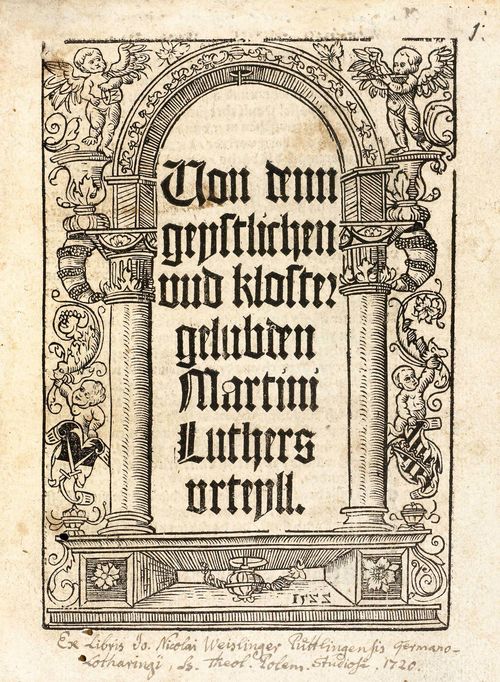 1.
Von denn
geystlichen
vnd kloster
gelubden
Martini
Luthers
vrteyll.
1522
Ex Libris Jo. Nicolai Weislinger Puttlingensis Germano-
Lotharingi, Ss. Theol. Polem. Studiosi. 1720.